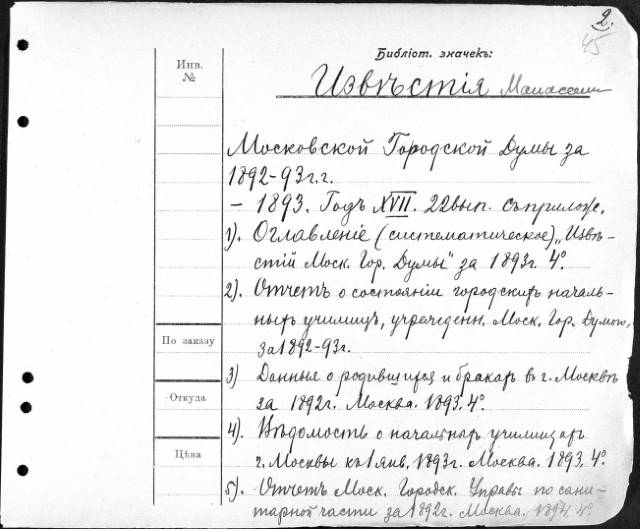 2.
45
Библіот. значекъ:
Инв.
№
Извѣстія
Московской Городской Думы за
1892-93г.г.
- 1893. Годъ XVII. 22 вып. съ прилож.
1). Оглавленіе (систематическое) „Извѣ-
стій Моск. Гор. Думы" за 1893г. 4°.
2). Отчетъ о состояніи городскихъ началь-
ныхъ училищъ, учрежденн. Моск. Гор. Думою,
за 1892-93г.
По заказу
3) Данныя о родившихся и бракахъ въ г. Москвѣ
за 1892г. Москва. 1893. 4°.
Откуда
4). Вѣдомость о начальныхъ училищахъ
г. Москвы къ 1 янв. 1893г. Москва. 1893. 4°.
Цѣна
5). Отчетъ Моск. Городск. Управы по сани-
тарной части за 1892г. Москва. 1894. 4°.